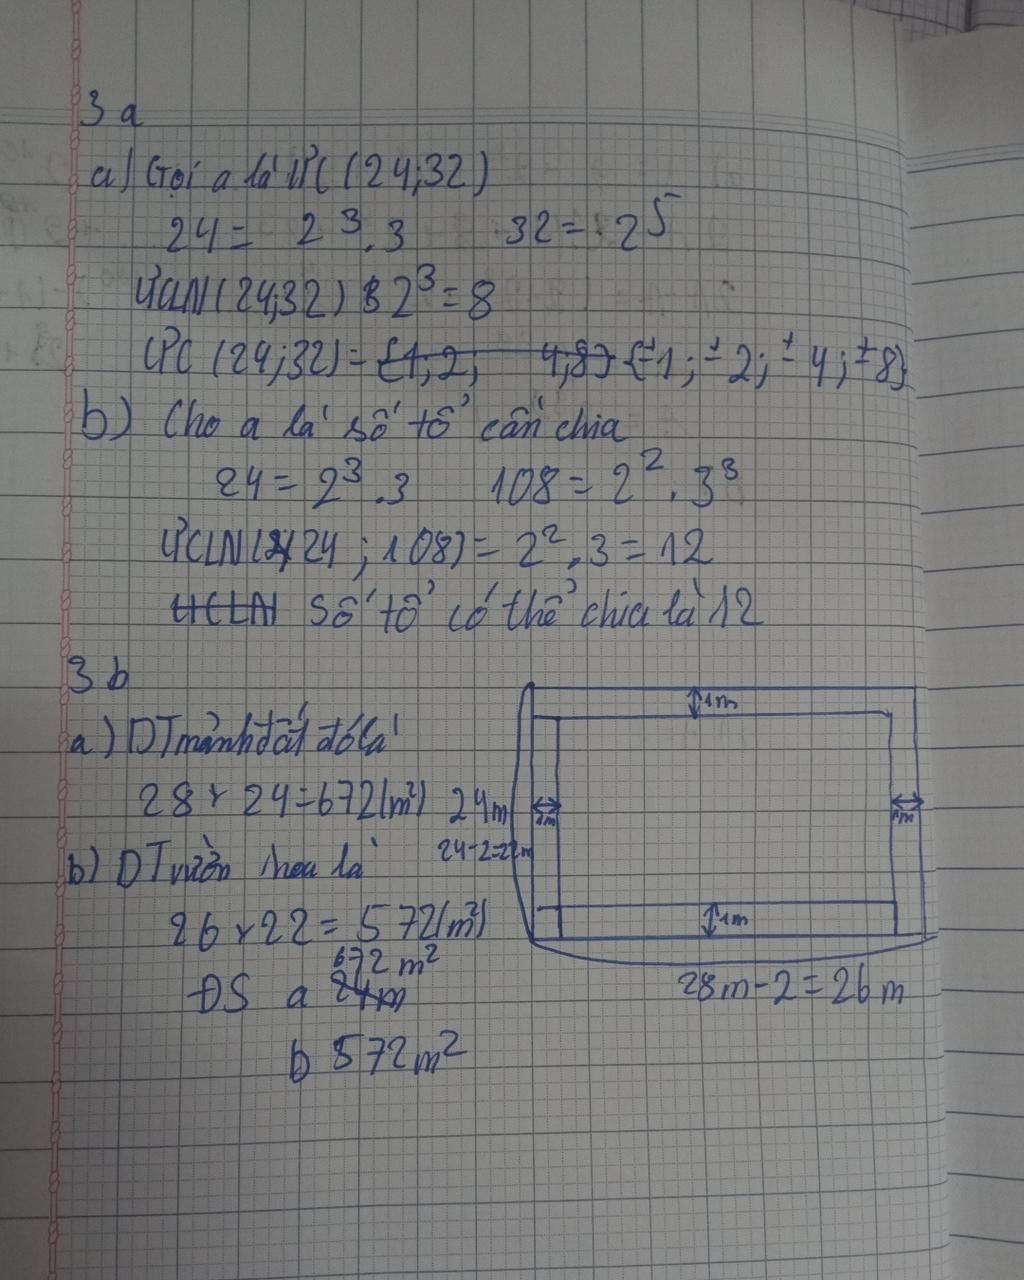 3a
a) Gọi a là ƯC (24;32)
24 = 2³.3 32 = 2⁵
ƯCLN (24;32) 2³ = 8
ƯC (24;32) = {1,2; 4,8} {±1; ±2; ±4; ±8}
b) Cho a là số tổ cần chia
24 = 2³.3 108 = 2².3³
ƯCLN (24; 108) = 2².3 = 12
ƯCLN Số tổ có thể chia là 12
3b
a) DT mảnh đất đó là
28 x 24 = 672 (m²)
b) DT vườn hoa là
26 x 22 = 572 (m²)
672 m²
ĐS a 24m
b 572 m²
1m
24m
1m
1m
24-2=22m
1m
28m-2=26m